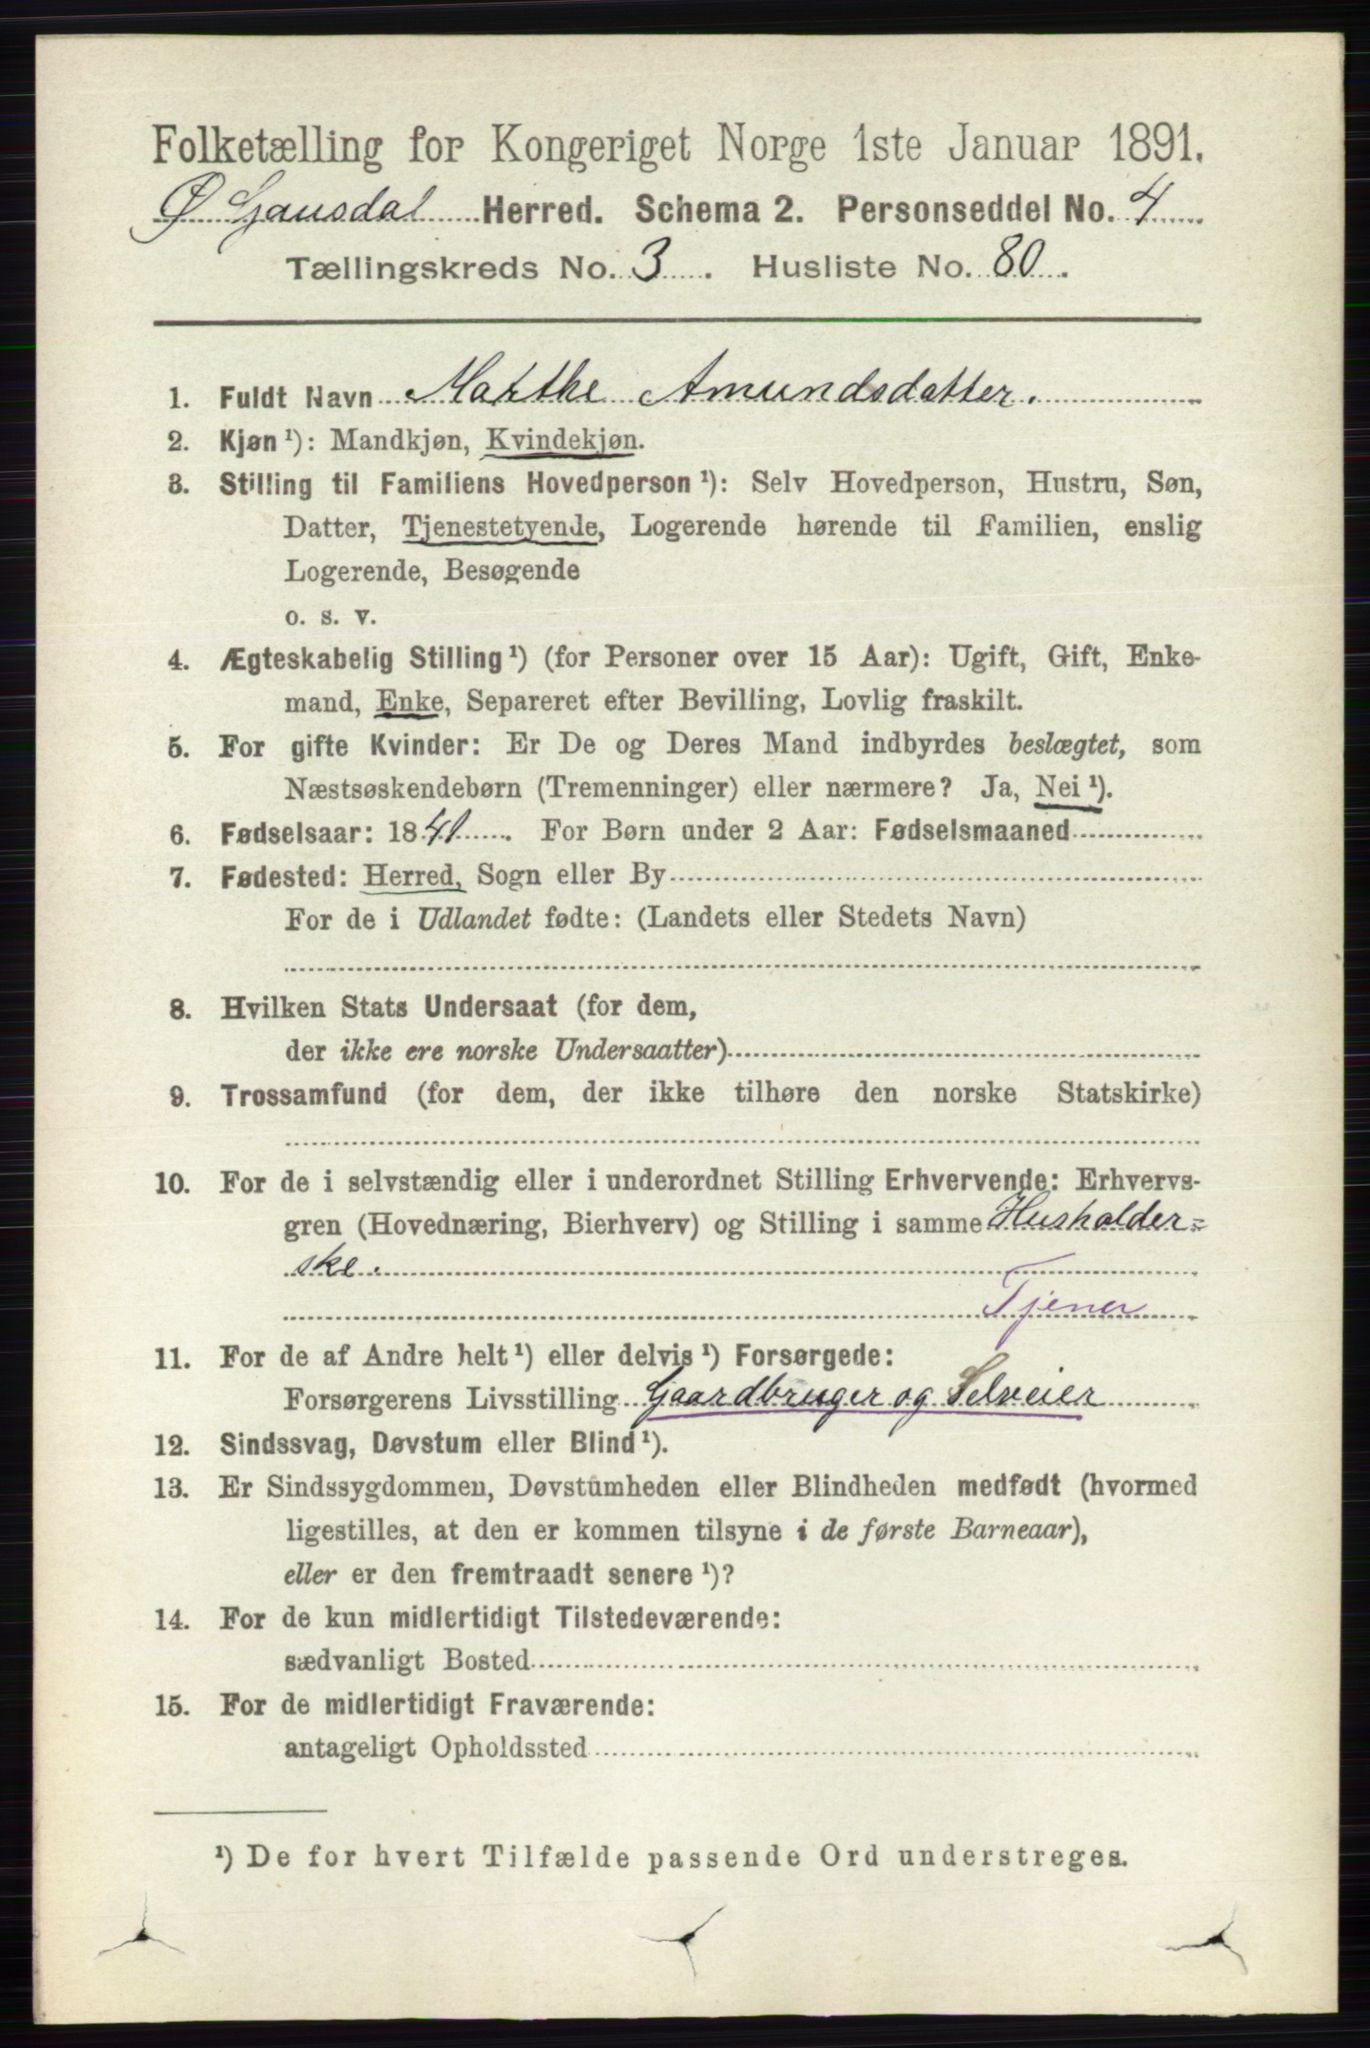 Folketælling for Kongeriget Norge 1ste Januar 1891.
Ø Gausdal Herred. Schema 2. Personseddel No. 4
Tællingskreds No. 3. Husliste No. 80.
1. Fuldt Navn Marthe Amundsdatter.
2. Kjøn ¹): Mandkjøn, Kvindekjøn.
3. Stilling til Familiens Hovedperson ¹): Selv Hovedperson, Hustru, Søn,
Datter, Tjenestetyende, Logerende hørende til Familien, enslig
Logerende, Besøgende
o. s. v.
4. Ægteskabelig Stilling ¹) (for Personer over 15 Aar): Ugift, Gift, Enke-
mand, Enke, Separeret efter Bevilling, Lovlig fraskilt.
5. For gifte Kvinder: Er De og Deres Mand indbyrdes beslægtet, som
Næstsøskendebørn (Tremenninger) eller nærmere? Ja, Nei ¹).
6. Fødselsaar: 1841. For Børn under 2 Aar: Fødselsmaaned
7. Fødested: Herred, Sogn eller By
For de i Udlandet fødte: (Landets eller Stedets Navn)
8. Hvilken Stats Undersaat (for dem,
der ikke ere norske Undersaatter)
9. Trossamfund (for dem, der ikke tilhøre den norske Statskirke)
10. For de i selvstændig eller i underordnet Stilling Erhvervende: Erhvervs-
gren (Hovednæring, Bierhverv) og Stilling i samme Husholder=
ske.
Tjener
11. For de af Andre helt ¹) eller delvis ¹) Forsørgede:
Forsørgerens Livsstilling Gaardbruger og Selveier
12. Sindssvag, Døvstum eller Blind ¹).
13. Er Sindssygdommen, Døvstumheden eller Blindheden medfødt (hvormed
ligestilles, at den er kommen tilsyne i de første Barneaar),
eller er den fremtraadt senere ¹)?
14. For de kun midlertidigt Tilstedeværende:
sædvanligt Bosted
15. For de midlertidigt Fraværende:
antageligt Opholdssted
¹) De for hvert Tilfælde passende Ord understreges.